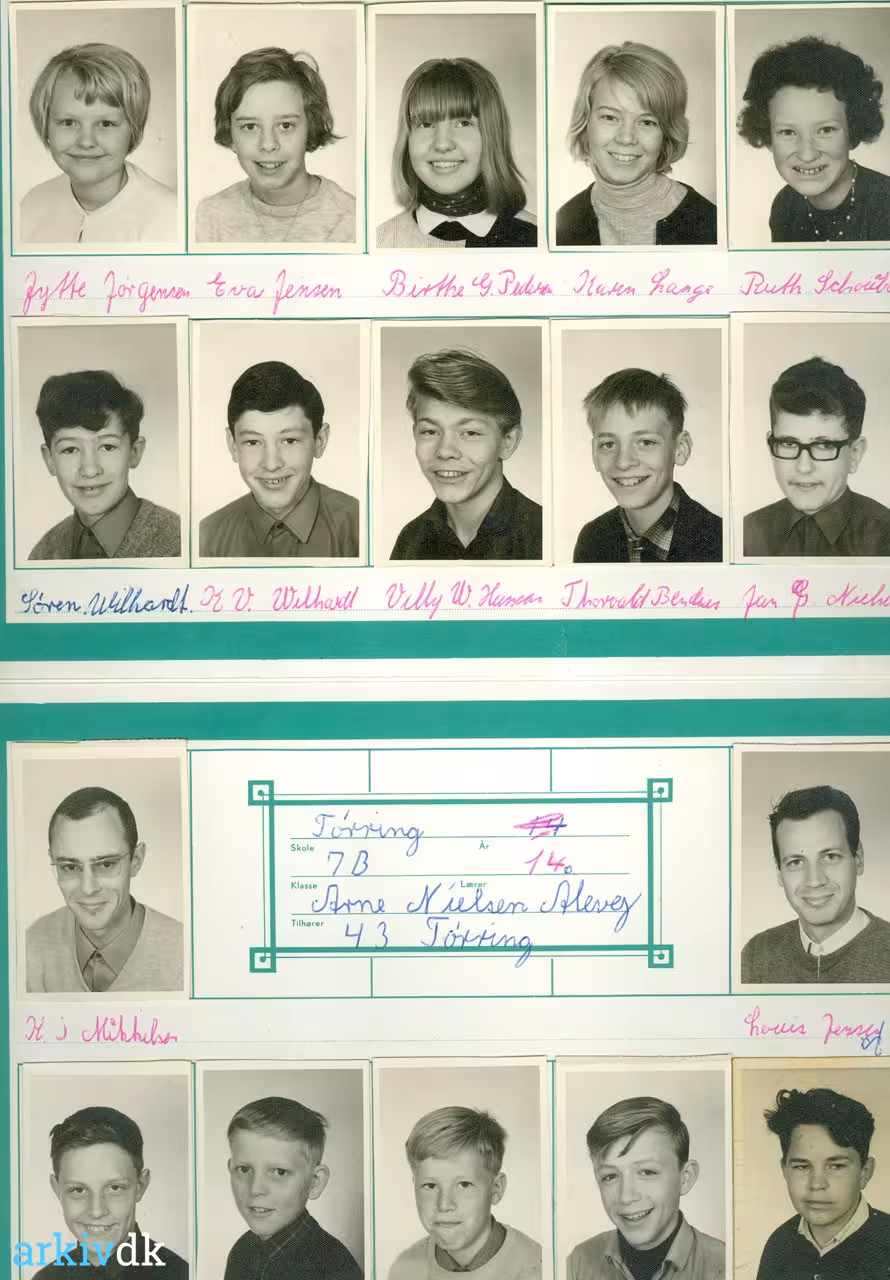 Jytte Jørgensen Eva Jensen Birthe G. Pedersen Karen Lange Ruth
Søren Wilhardt. K V. Wilhardt Villy W. Hansen Thorvald Bendies Jan
Tørring
Skole År
7B 14.
Klasse Lærer
Arne Nielsen Alevej
Tilhører
43 Tørring
K. J Mikkelsen Louis Jensen
arkivdk